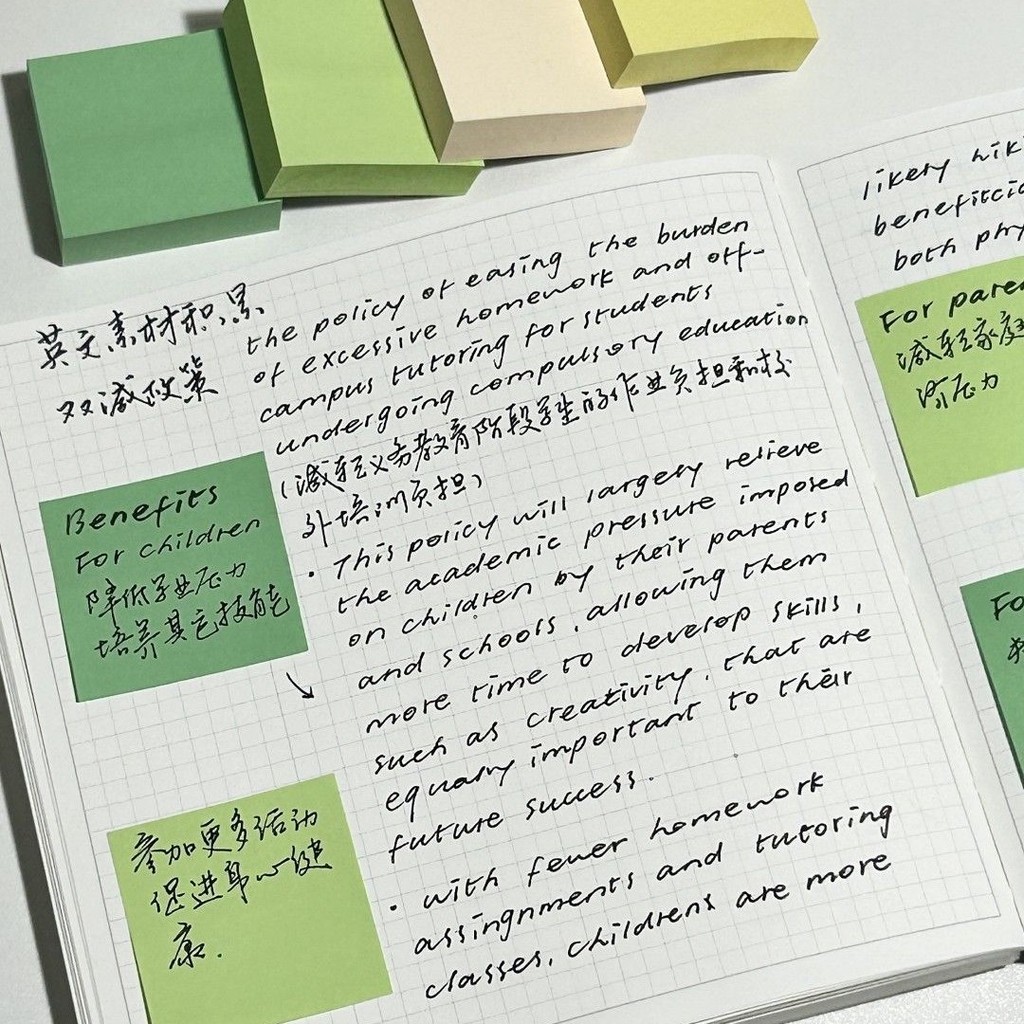 英文素材积累
双减政策
the policy of easing the burden
of excessive homework and off-
campus tutoring for students
undergoing compulsory education
(减轻义务教育阶段学生的作业负担和校
外培训负担)
Benefits
For children
降低学业压力
培养其它技能
· This policy will largely relieve
the academic pressure imposed
on children by their parents
and schools, allowing them
more time to develop skills,
such as creativity, that are
equally important to their
future success.
参加更多活动
促进身心健
康.
· with fewer homework
assingnments and tutoring
classes, childrens are more
likely
benefitci
both phy
For paren
减轻家庭
济压力
Fo